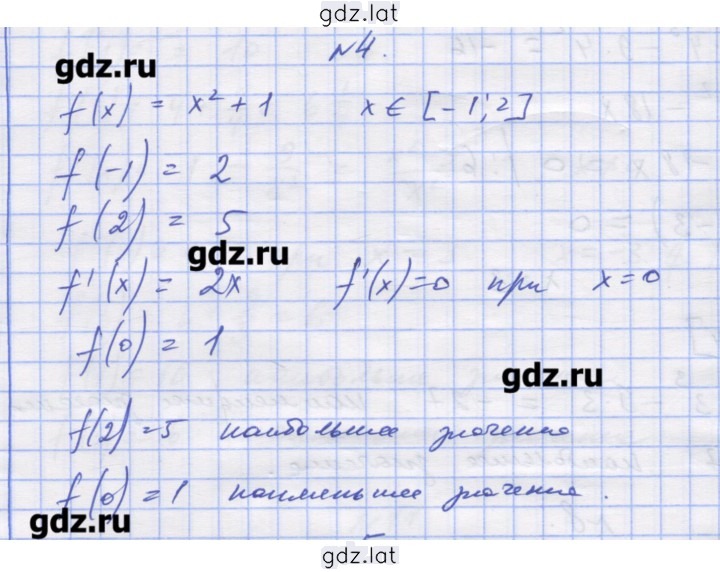 gdz.lat
№4.
gdz.ru
f(x) = x² + 1 x ∈ [-1; 2]
f(-1) = 2
f(2) = 5
gdz.ru
f'(x) = 2x f'(x)=0 при x=0
f(0) = 1
gdz.ru
f(2) = 5 наибольшее значение
f(0) = 1 наименьшее значение.
gdz.ru
gdz.lat